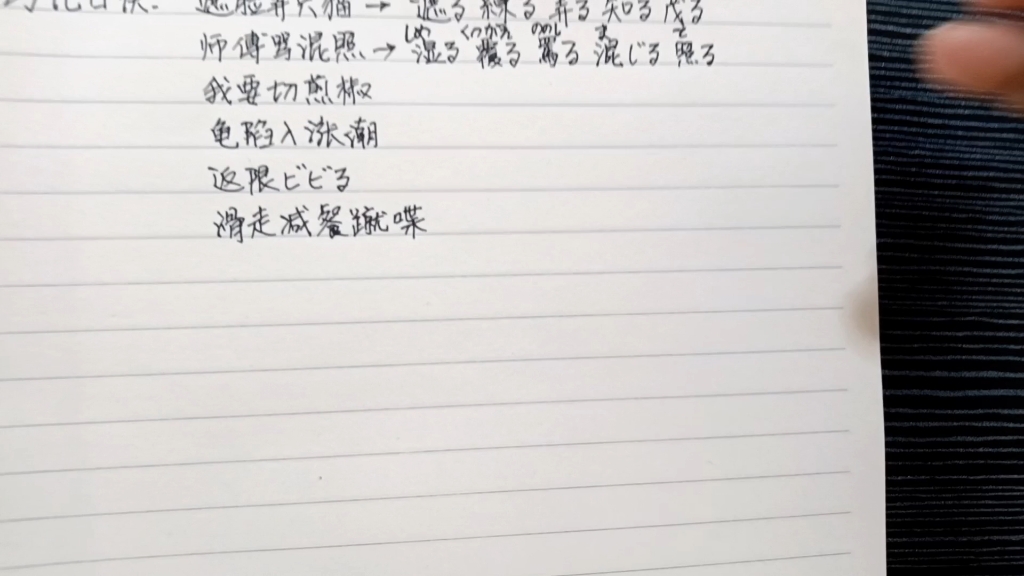 遮脸弄只猫 → 遮る 練る 弄る 知る 茂る
师傅骂混照 → 湿る 覆る 罵る 混じる 照る
しめ くつがえ ののし ま て
我要切煎椒
龟陷入涨潮
返限ビビる
滑走减餐蹴喋